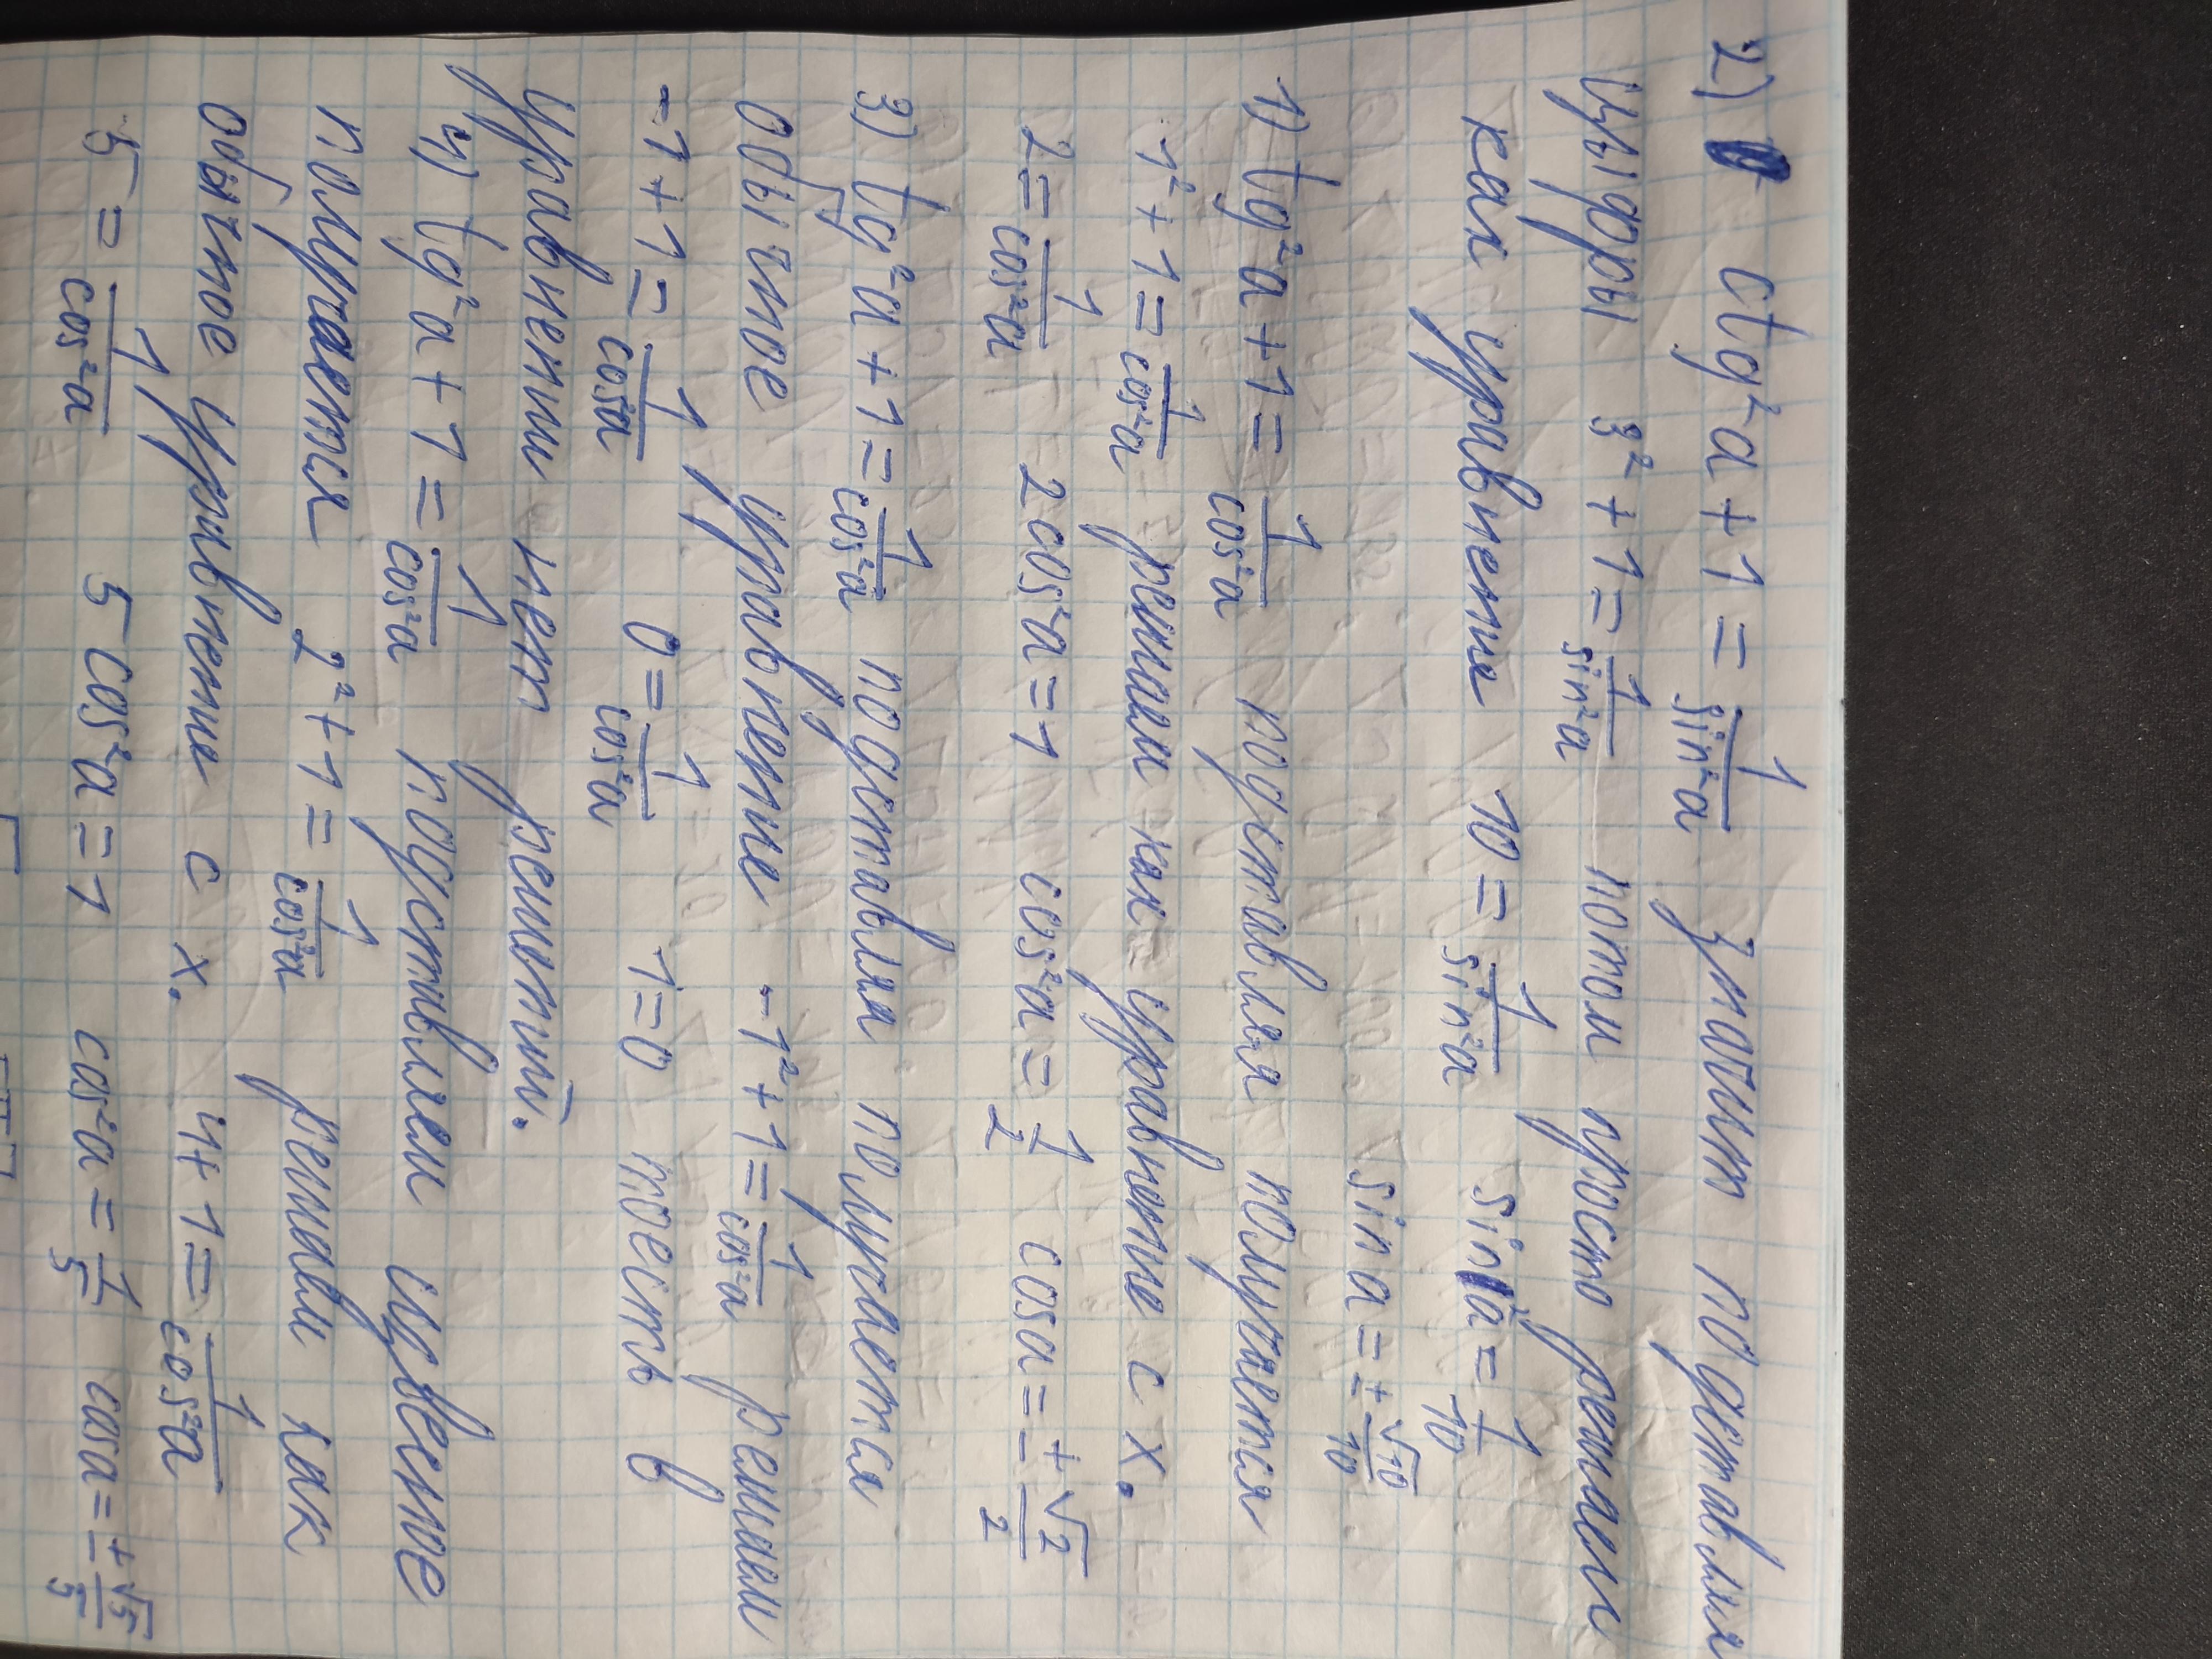 2) ctg²a + 1 = 1/sin²a значит подставляя
цыфры 3² + 1 = 1/sin²a потом просто решаем
как уравнение 10 = 1/sin²a sin²a = 1/10
sin a = ±√10/10
1) tg²a + 1 = 1/cos²a подставляя получается
1² + 1 = 1/cos²a решаем как уравнение с x.
2 = 1/cos²a 2cos²a = 1 cos²a = 1/2 cosa = ±√2/2
3) tg²a + 1 = 1/cos²a подставляя получается
обычное уравнение -1² + 1 = 1/cos²a решаем
-1 + 1 = 1/cos²a 0 = 1/cos²a 1 = 0 тоесть в
уравнении нет решений.
4) tg²a + 1 = 1/cos²a подставляем
получается 2² + 1 = 1/cos²a решаем как
обычное уравнение с x. 4 + 1 = 1/cos²a
5 = 1/cos²a 5 cos²a = 1 cos²a = 1/5 cosa = ±√5/5